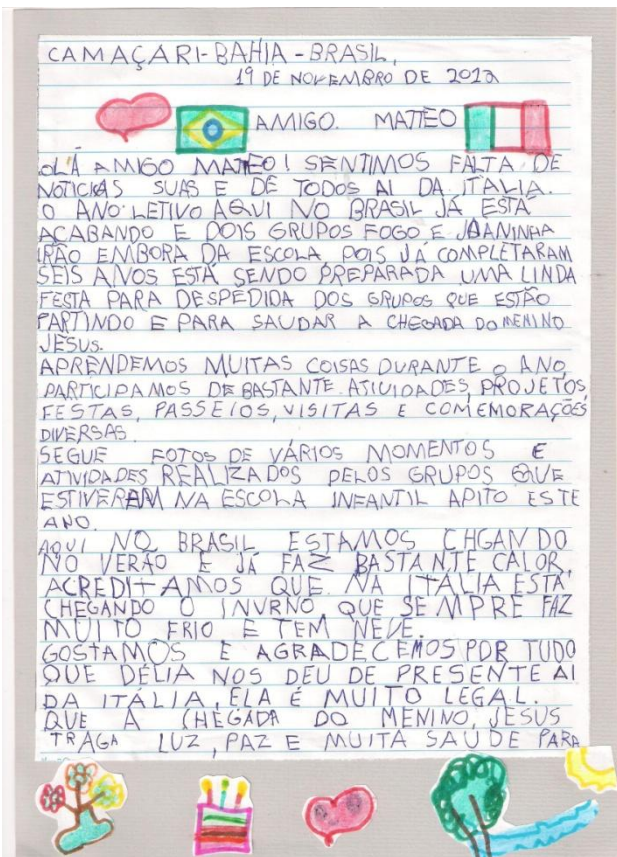 CAMAÇARI-BAHIA-BRASIL,
19 DE NOVEMBRO DE 2012
AMIGO. MATTEO
OLÁ AMIGO MATTEO! SENTIMOS FALTA DE
NOTICIAS SUAS E DE TODOS AI DA ITALIA.
O ANO LETIVO AQUI NO BRASIL JÁ ESTÁ
ACABANDO E DOIS GRUPOS FOGO E JOANINHA
IRÃO EMBORA DA ESCOLA, POIS JÁ COMPLETARAM
SEIS ANOS ESTÁ SENDO PREPARADA UMA LINDA
FESTA PARA DESPEDIDA DOS GRUPOS QUE ESTÃO
PARTINDO E PARA SAUDAR A CHEGADA DO MENINO
JESUS.
APRENDEMOS MUITAS COISAS DURANTE O ANO,
PARTICIPAMOS DE BASTANTE ATIVIDADES, PROJETOS,
FESTAS, PASSEIOS, VISITAS E COMEMORAÇÕES
DIVERSAS.
SEGUE FOTOS DE VÁRIOS MOMENTOS E
ATIVIDADES REALIZADOS PELOS GRUPOS QUE
ESTIVERAM NA ESCOLA INFANTIL APITO ESTE
ANO.
AQUI NO BRASIL ESTAMOS CHGANDO
NO VERÃO E JÁ FAZ BASTANTE CALOR,
ACREDITAMOS QUE NA ITALIA ESTÁ
CHEGANDO O INVRNO, QUE SEMPRE FAZ
MUITO FRIO E TEM NEVE.
GOSTAMOS E AGRADECEMOS POR TUDO
QUE DÉLIA NOS DEU DE PRESENTE AI
DA ITÁLIA, ELA É MUITO LEGAL.
QUE A CHEGADA DO MENINO JESUS
TRAGA LUZ, PAZ E MUITA SAÚDE PARA